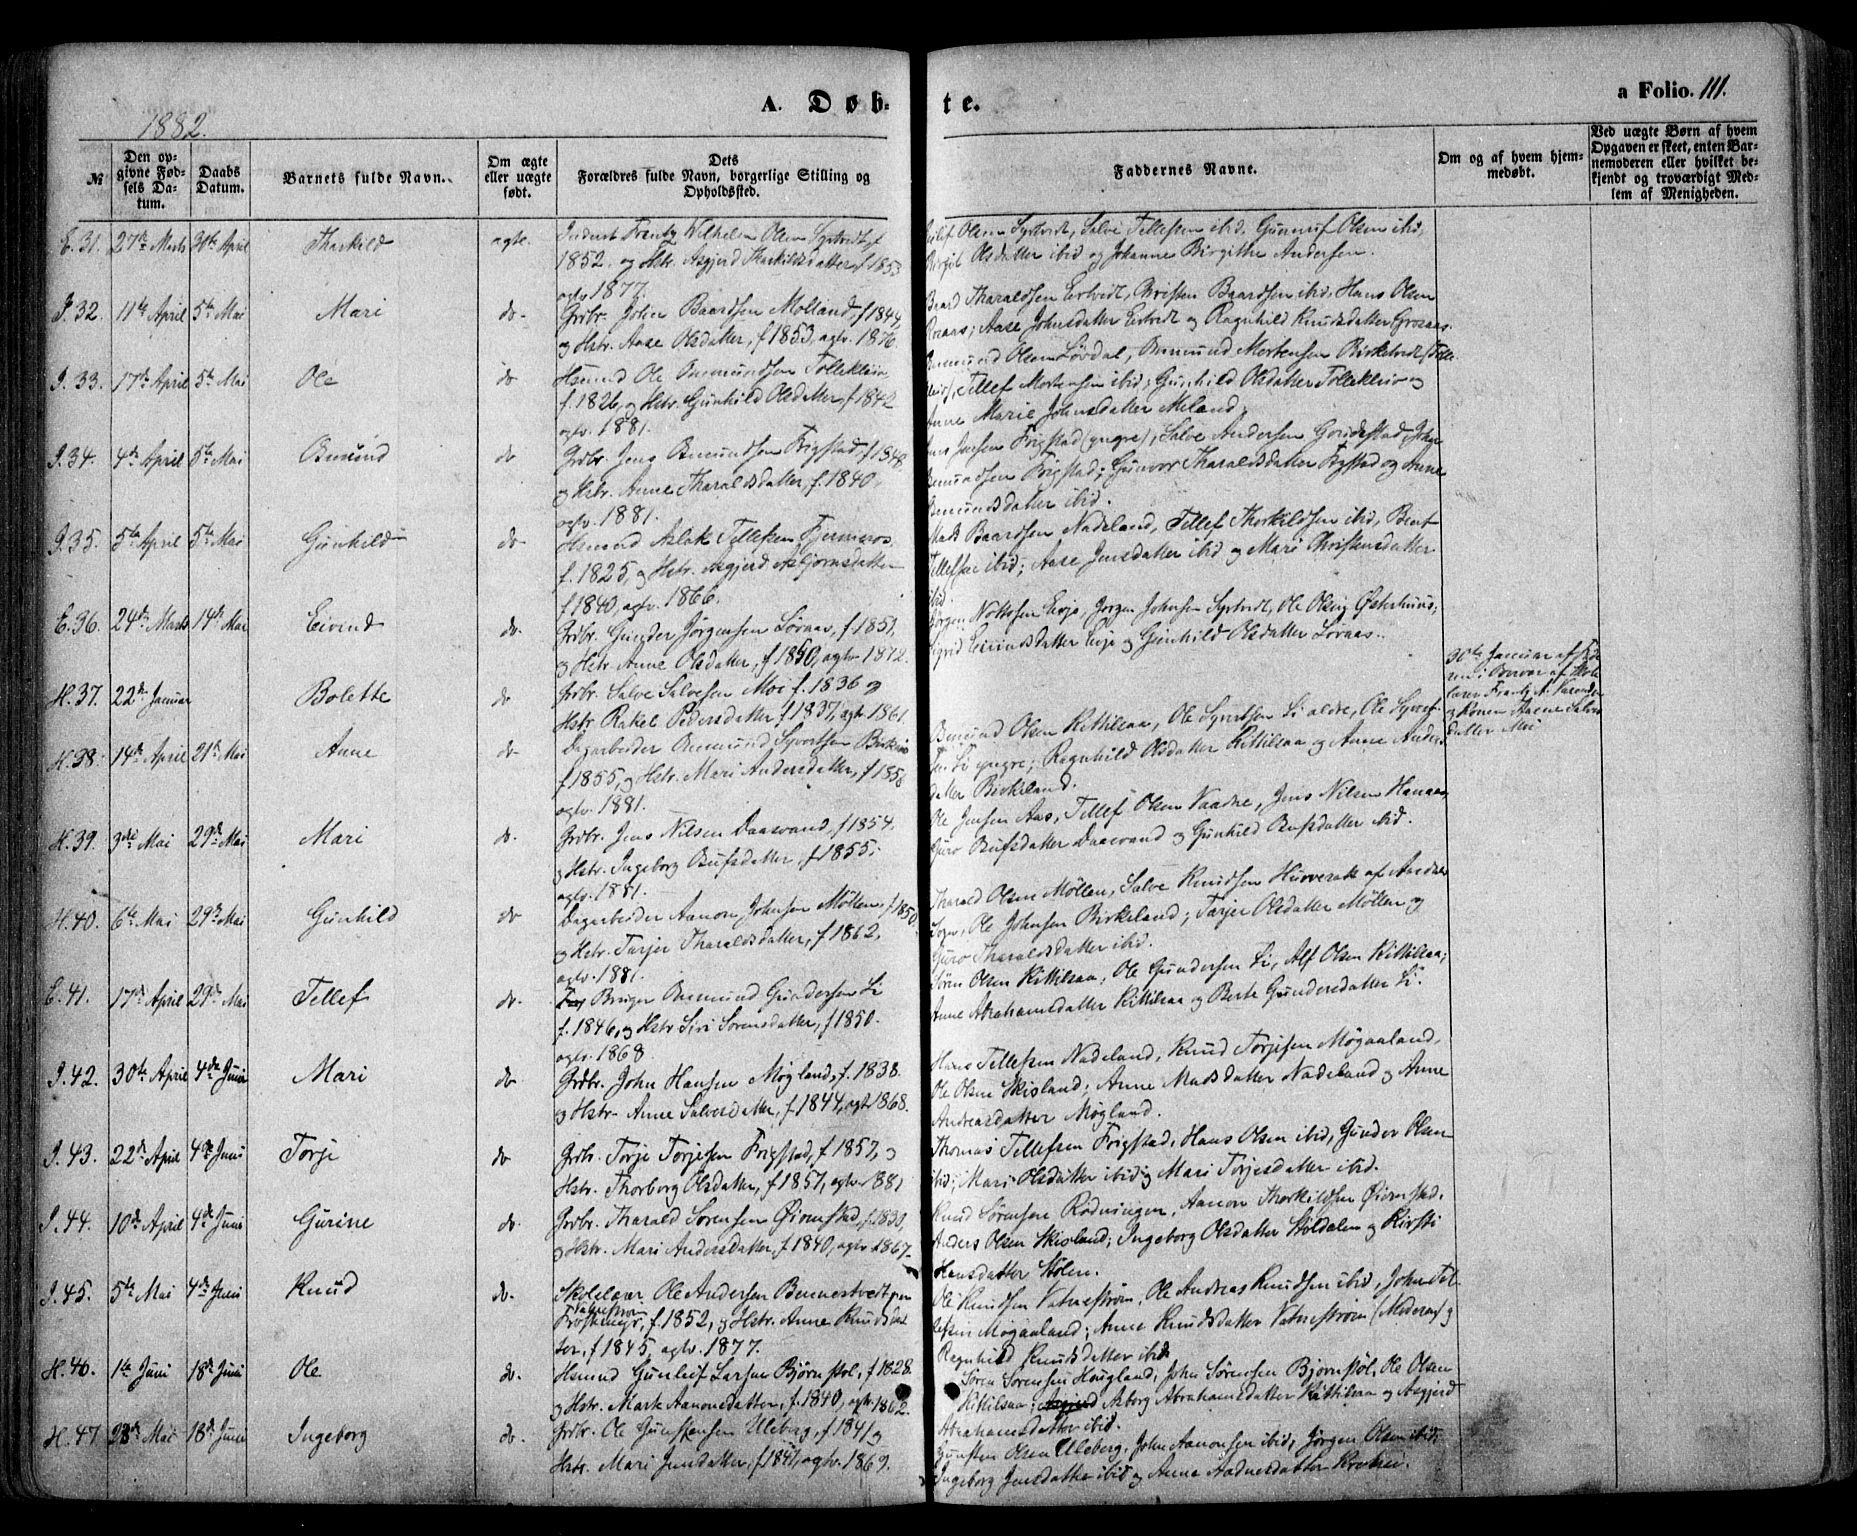 A. Døb-
te.
a Folio. 111.
1882.
№
Den op-
givne Fød-
sels Da-
tum.
Daabs
Datum.
Barnets fulde Navn.
Om ægte
eller uægte
født.
Dets
Forældres fulde Navn, borgerlige Stilling og
Opholdssted.
Faddernes Navne.
Om og af hvem hjem-
medøbt.
Ved uægte Børn af hvem
Opgaven er skeet, enten Bar-
nemoderen eller hvilket be-
kjendt og troværdigt Med-
lem af Menigheden.
E. 31. 27de Marts 30te April Tharkild ægte. Wilhelm Olsen Syrtveit, f.
1852. og Hstr. Asgjerd Tharkildsdatter, f 1853
agtv 1877.
Olsen Syrtvedt, Salve Tellefsen ibid, Gunnuf Olsen ibid,
Birgit Olsdatter ibid og Johanne Birgithe Andersen.
I. 32. 11te April 5te Mai Mari do. Grdbr. John Baardsen Molland, f 1844,
og Hstr. Aase Olsdatter, f 1853, agtv. 1876.
Baard Tharaldsen Ertvedt, Christen Baardsen ibid, Hans Olsen
Aase Johnsdatter Ertvedt og Ragnhild Knudsdatter Grosaas.
I. 33. 17de April 5te Mai Ole do Hsmnd Ole Osmundsen Tollekleiv
f. 1826, og Hstr. Gunhild Olsdatter, f 1842
agtv. 1881.
Osmund Olsen Løvdal, Osmund Mortensen Birketvedt
Tellef Mortensen ibid; Gunhild Olsdatter Tollekleiv og
Anne Marie Johnsdatter Meland.
I. 34. 4de April 5te Mai Osmund do Grdbr. Jens Osmundsen Frigstad, f 1848
og Hstr. Anne Tharaldsdatter, f. 1840.
agtv. 1881.
Jens Jensen Frigstad (yngre), Salve Andersen
Osmundsen Frigstad; Gunvor Tharaldsdatter Frigstad og Anne
Osmundsdatter ibid.
I. 35. 5te April 5te Mai Gunhild do Hsmnd Aslak Tellefsen
f. 1825, og Hstr. Asgjerd Asbjørnsdatter
f 1840, agtv. 1866.
Mads Baardsen Nadeland, Tellef Thorkildsen ibid, Bent
Tellefsen ibid; Aase Jensdatter ibid og Mari Christensdatter
ibid.
E. 36. 24de Marts 14de Mai Eivind do. Grdbr. Gunder Jørgensen Løvaas, f. 1851,
og Hstr. Anne Olsdatter, f 1850, agtv 1872.
Jørgen Nottosen Evje, Jørgen Johnsen Syrtvedt, Ole Olsen Østerhuus;
Sigrid Eivindsdatter Evje og Gunhild Olsdatter Løvaas.
H. 37. 22de Januar Bolette do Grdbr. Salve Salvesen Moi f. 1836 og
Hstr. Rakel Pedersdatter f 1837, agtv 1861.
30te Januar af
af Skole-
lærer Frantz A.
og Konen Aasne Salves
datter Moi
H. 38. 14de April 21de Mai Anne do Dagarbeider Osmund Syvertsen
f 1855, og Hstr. Mari Andersdatter, f 1858
agtv. 1881.
Osmund Olsen Kittilsaa, Ole Syvertsen Li ældre, Ole Syvert-
sen Li yngre; Ragnhild Olsdatter Kittilsaa og Anne Anders-
datter Birkeland.
H. 39. 3die Mai 29de Mai Mari do. Grdbr. Jens Nilsen Daasvand, f 1854.
og Hstr. Ingeborg Bufsdatter, f 1855;
agtv. 1881.
Ole Jensen Aas, Tellef Olsen Jens Nilsen
Guro Bufsdatter Daasvand og Gunhild Bufsdatter ibid.
H. 40. 6te Mai 29de Mai Gunhild do Dagarbeider Aanon Johnsen Møllen, f 1850,
og Hstr. Tarjer Tharaldsdatter, f 1862,
agtv. 1881.
Tharald Olsen Møllen, Salve Knudsen af
Ole Johnsen Birkeland; Tarjer Olsdatter Møllen og
Guro Tharaldsdatter ibid.
E. 41. 17de April 29de Mai Tellef do. Bruger Osmund Gundersen Li
f. 1846, og Hstr Siri Sørensdatter, f 1850.
agtv. 1868.
Søren Olsen Kittilsaa, Ole Gundersen Li, Alf Olsen Kittilsaa;
Anne Abrahamsdatter Kittilsaa og Berte Gundersdatter Li.
I. 42. 30te April 4de Juni Mari do Grdbr. John Hansen Møgland, f. 1838.
og Hstr. Anne Salvesdatter, f 1844, agtv 1868.
Hans Tellefsen Nadeland, Knud Torjesen Møgaaland,
Ole Olsen Skisland; Anne Madsdatter Nadeland og Anne
Andreasdatter Møgland.
I. 43. 22de April 4de Juni Torje do Grdbr. Torje Torjesen Frigstad, f 1857, og
Hstr. Thorborg Olsdatter, f 1857, agtv 1881
Thomas Tellefsen Frigstad, Hans Olsen ibid, Gunder Olsen
ibid; Mari Olsdatter ibid og Mari Torjesdatter ibid.
I. 44. 10de April 4de Juni Gurine do. Grdbr. Tharald Sørensen Øivenstad, f. 1830,
og Hstr. Mari Andersdatter, f. 1840, agtv 1867.
Knud Sørensen Rødningen, Aanon Thorkildsen Øivenstad,
Anders Olsen Skisland; Ingeborg Olsdatter Støldalen og Kirsti
Hansdatter Stølen.
I. 45. 5te Mai 4de Juni Knud do. Skolelærer Ole Andersen Bennestvedt
Vatnestrøm
f. 1852, og Hstr. Anne Knudsdat-
ter, f 1845, agtv. 1877.
Ole Knudsen Vatnestrøm, Ole Andreas Knudsen ibid, John Tel-
lefsen Møgaaland; Anne Knudsdatter Vatnestrøm (Moderen) og
Ragnhild Knudsdatter ibid.
H. 46. 1te Juni 18de Juni Ole do. Hsmnd Gunleif Larsen Bjørnstøl, f 1828.
og Hstr. Marte Aanonsdatter, f. 1840, agtv 1862.
Søren Sørensen Hougland, John Sørensen Bjørnstøl, Ole Olsen
Kittilsaa; Asborg Abrahamsdatter Kittilsaa og Asgjerd
Abrahamsdatter ibid.
H. 47. 28de Mai 18de Juni Ingeborg do. Grdbr. Ole Gunstensen Uleberg, f 1841 og
Hstr. Mari Jensdatter, f 1841, agtv. 1869.
Gunsten Olsen Uleberg, John Aanonsen ibid, Jørgen Olsen ibid;
Ingeborg Jensdatter ibid og Anne Aadnesdatter